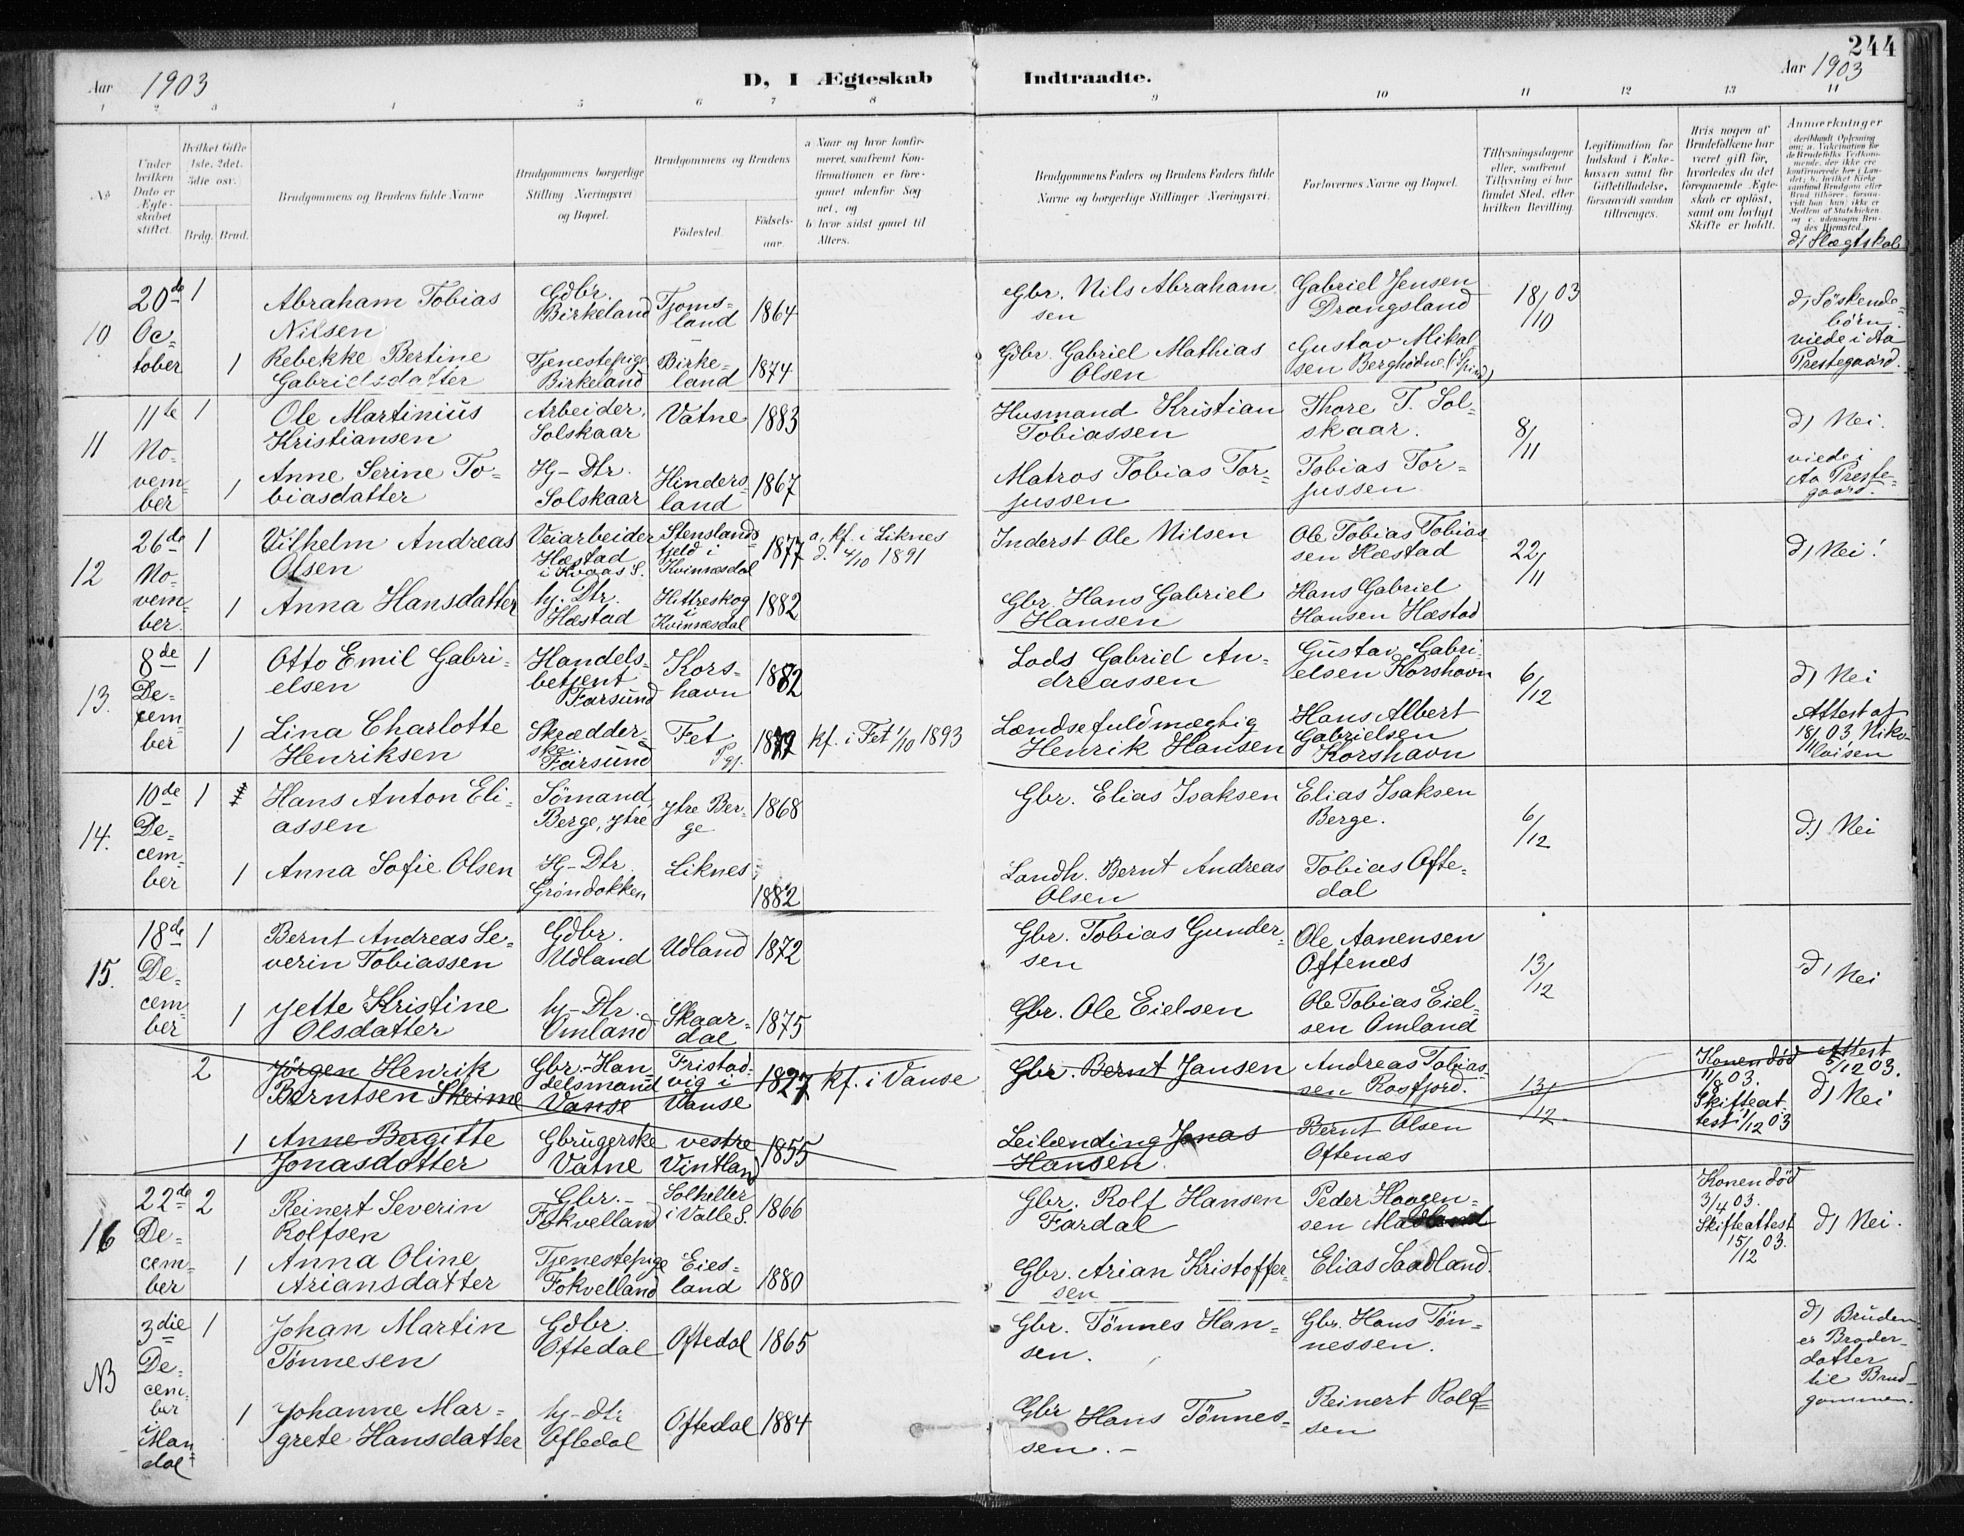 244
Aar 1903
D, I Ægteskab Indtraadte.
Aar 1903
1 2 3 4 5 6 7 8 9 10 11 12 13 14
No.
Under hvilken Dato er Ægteskabet stiftet.
Hvilket Gifte 1ste, 2det, 3die osv.
Brdg. Brud.
Brudgommens og Brudens fulde Navne
Brudgommens borgerlige Stilling (Næringsvei) og Bopæl.
Brudgommens og Brudens
Födested.
Födsels-aar.
a Naar og hvor konfirmeret, saafremt Konfirmationen er foregaaet udenfor Sognet, og
b hvor sidst gaaet til Alters.
Brudgommens Faders og Brudens Faders fulde Navne og borgerlige Stillinger (Næringsvei).
Forlovernes Navne og Bopæl.
Tillysningsdagene eller, saafremt Tillysning ei har fundet Sted, efter hvilken Bevilling.
Legitimation for Indskud i Enkekassen samt for Giftetilladelse, forsaavidt saadan tiltrænges.
Hvis nogen af Brudefolkene har været gift før, hvorledes da det foregaaende Ægteskab er oplöst, samt om lovligt Skifte er holdt.
Anmærkninger
d) Slægtskab
10
20de October
1
Abraham Tobias Nilsen
Gdbr. Birkeland
Tjomsland
1864
Gbr. Nils Abrahamsen
Gabriel Jensen Drangsland
18/10 03
d) Söskendebörn.
viede i Aa Prestegaard.
1
Rebekke Bertine Gabrielsdatter
Tjenestepige Birkeland
Birkeland
1874
Gdbr. Gabriel Mathias Olsen
Gustav Mikalsen
11
11te November
1
Ole Martinius Kristiansen
Arbeider. Solskaar
Vatne
1883
Husmand Kristian Tobiassen
Thore T. Solskaar.
8/11
d) Nei.
viede i Aa Prestegaard.
1
Anne Serine Tobiasdatter
Hj-Dtr. Solskaar
Hindersland
1867
Matros Tobias Torjussen
Tobias Torjussen
12
26de November.
1
Vilhelm Andreas Olsen
Veiarbeider Hæstad i Kvaas S.
Stenslandsfjeld i Kvinnesdal
1877
a, kf. i Liknes d. 4/10 1891
Inderst Ole Nilsen
Ole Tobias Tobiassen Hæstad
22/11
d) Nei!
1
Anna Hansdatter
hj. Dtr. Hæstad
Hittreskog i Kvinnesdal
1882
Gbr. Hans Gabriel Hansen
Hans Gabriel Hansen Hæstad
13.
8de December
1
Otto Emil Gabrielsen
Handelsbetjent Farsund
Korshavn
1882
Lods Gabriel Andreassen
Gustav Gabrielsen Korshavn
6/12
d) Nei
Attest af 18/11 03,
1
Lina Charlotte Henriksen
Skrædderske. Farsund
Fet Pgj.
1877
kf. i Fet 1/10 1893
Lændsefuldmægtig Henrik Hansen
Hans Albert Gabrielsen Korshavn
14.
10de December
1
Hans Anton Eliassen
Sömand, Berge, ytre
ytre Berge
1868
Gbr. Elias Isaksen
Elias Isaksen Berge.
6/12
d.) Nei
1
Anna Sofie Olsen
Hj-Dtr. Gröndokken
Liknes
1882
Landh. Bernt Andreas Olsen
Tobias Oftedal
15.
18de December
1
Bernt Andreas Severin Tobiassen
Gdbr. Udland
Udland
1872
Gbr. Tobias Gundersen
Ole Aanensen Oftenæs
13/12
d) Nei
1
Jette Kristine Olsdatter
hj-Dtr. Omland
Skaardal
1875
Gbr. Ole Eielsen
Ole Tobias Eielsen Omland
2
Jörgen Henrik Berntsen Skeime
Gbr.-Handelsmand Vanse
Fristadvig i Vanse
1827
kf. i Vanse
Gbr. Bernt Jansen
Andreas Tobiassen Rosfjord.
13/12.
Konen död 11/8 03. Skifteattest 1/12 03
Attest 5/12 03.
d) Nei
1
Anne Bergitte Jonasdatter
Gbrugerske Vatne
vestre Vintland
1855
Leilænding Jonas Hansen.
Bernt Olsen Oftenæs
16
22de December
2
Reinert Severin Rolfsen
Gbr.- Fokvelland
Solhelter i Valle S.
1866
Gbr. Rolf Hansen Fardal
Peder Haagensen
Konen död 3/4 03. Skifteattest 15/12 03.
d) Nei.
1
Anna Oline Ariansdatter
Tjenestepige Fokvelland
Eiesland
1880
Gbr. Arian Kristoffersen
Elias Saadland.
NB
3die December i Mandal
1
Johan Martin Tönnesen
Gdbr. Oftedal
Oftedal
1865
Gbr. Tönnes Hansen.
Gbr. Hans Tönnessen.
d) Bruden er Broderdatter til Brudgommen.
1
Johanne Margrete Hansdatter
hj-dtr Oftedal
Oftedal
1884
Gbr Hans Tönnessen.-
Reinert Rolfsen